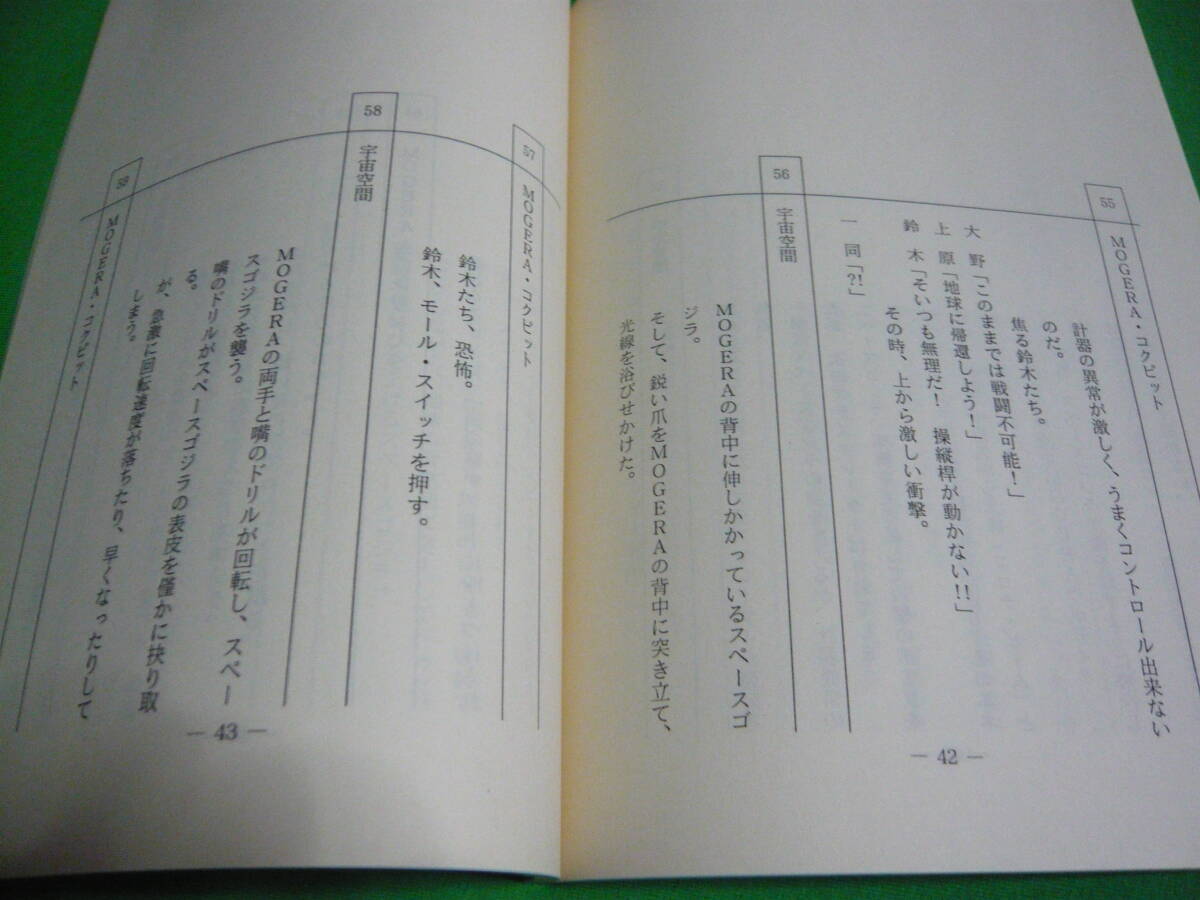 55
MOGERA・コクピット
計器の異常が激しく、うまくコントロール出来ない
のだ。
焦る鈴木たち。
大　野「このままでは戦闘不可能！」
上　原「地球に帰還しよう！」
鈴　木「そいつも無理だ！　操縦桿が動かない!!」
その時、上から激しい衝撃。
一　同「?!」
56
宇宙空間
MOGERAの背中に伸しかかっているスペースゴ
ジラ。
そして、鋭い爪をMOGERAの背中に突き立て、
光線を浴びせかけた。
— 42 —
57
MOGERA・コクピット
鈴木たち、恐怖。
鈴木、モール・スイッチを押す。
58
宇宙空間
MOGERAの両手と嘴のドリルが回転し、スペー
スゴジラを襲う。
嘴のドリルがスペースゴジラの表皮を僅かに抉り取
る。
が、急激に回転速度が落ちたり、早くなったりして
しまう。
59
MOGERA・コクピット
— 43 —